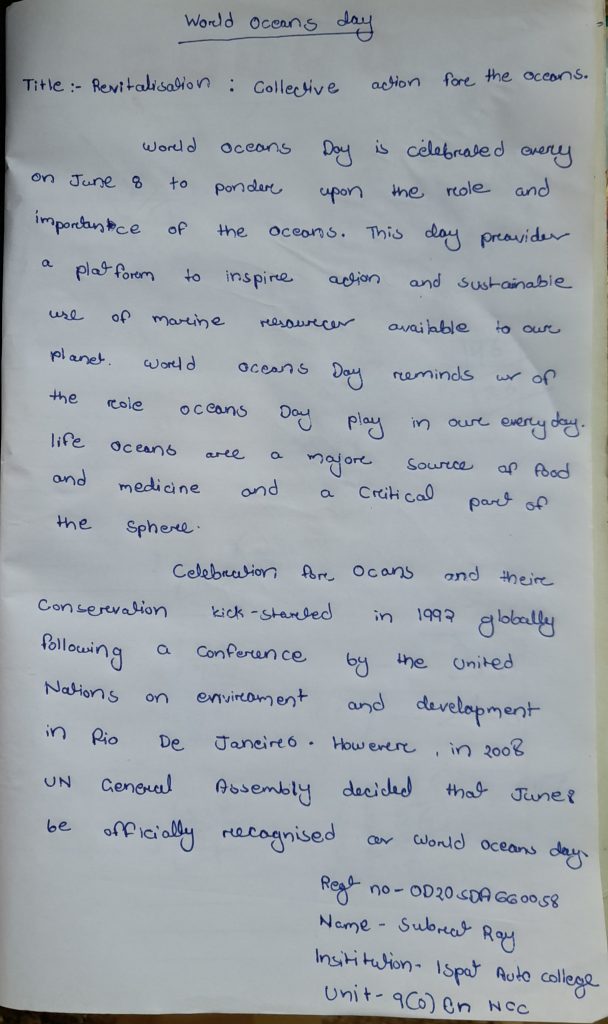 World Oceans day
Title :- Revitalisation : Collective action fore the oceans.
World Oceans Day is celebrated every
on June 8 to pondere upon the role and
importance of the oceans. This day preovider
a platform to inspire action and sustainable
use of marine resourcer available to our
planet. World Oceans Day reminds ur of
the role oceans Day play in oure everyday.
life oceans aree a majore source of food
and medicine and a Critical part of
the sphere.
Celebration fore Ocans and theire
Conservation kick-started in 1992 globally
following a conference by the United
Nations on enviroament and development
in Rio De Janeiro. Howevere, in 2008
UN General Assembly decided that June 8
be officially recognised ar World Oceans day.
Regt no - OD20SDA660058
Name - Subrat Ray
Insititution - Ispat Auto college
Unit - 9(O) Bn NCC